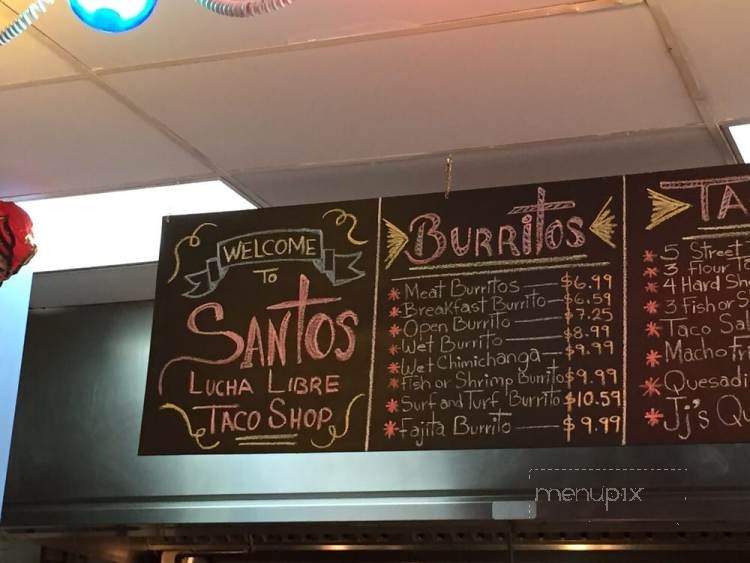 WELCOME
TO
SANTOS
LUCHA LIBRE
TACO SHOP
BURRITOS
* Meat Burritos — $6.99
* Breakfast Burrito — $6.59
* Open Burrito — $7.25
* Wet Burrito — $8.99
* Wet Chimichanga — $9.99
* Fish or Shrimp Burrito $9.99
* Surf and Turf Burrito — $10.59
* Fajita Burrito — $9.99
TA
* 5 Street
* 3 flour Ta
* 4 Hard Sh
* 3 Fish or S
* Taco Sal
* Macho Fri
* Quesadi
* Jj's Qu
menupix